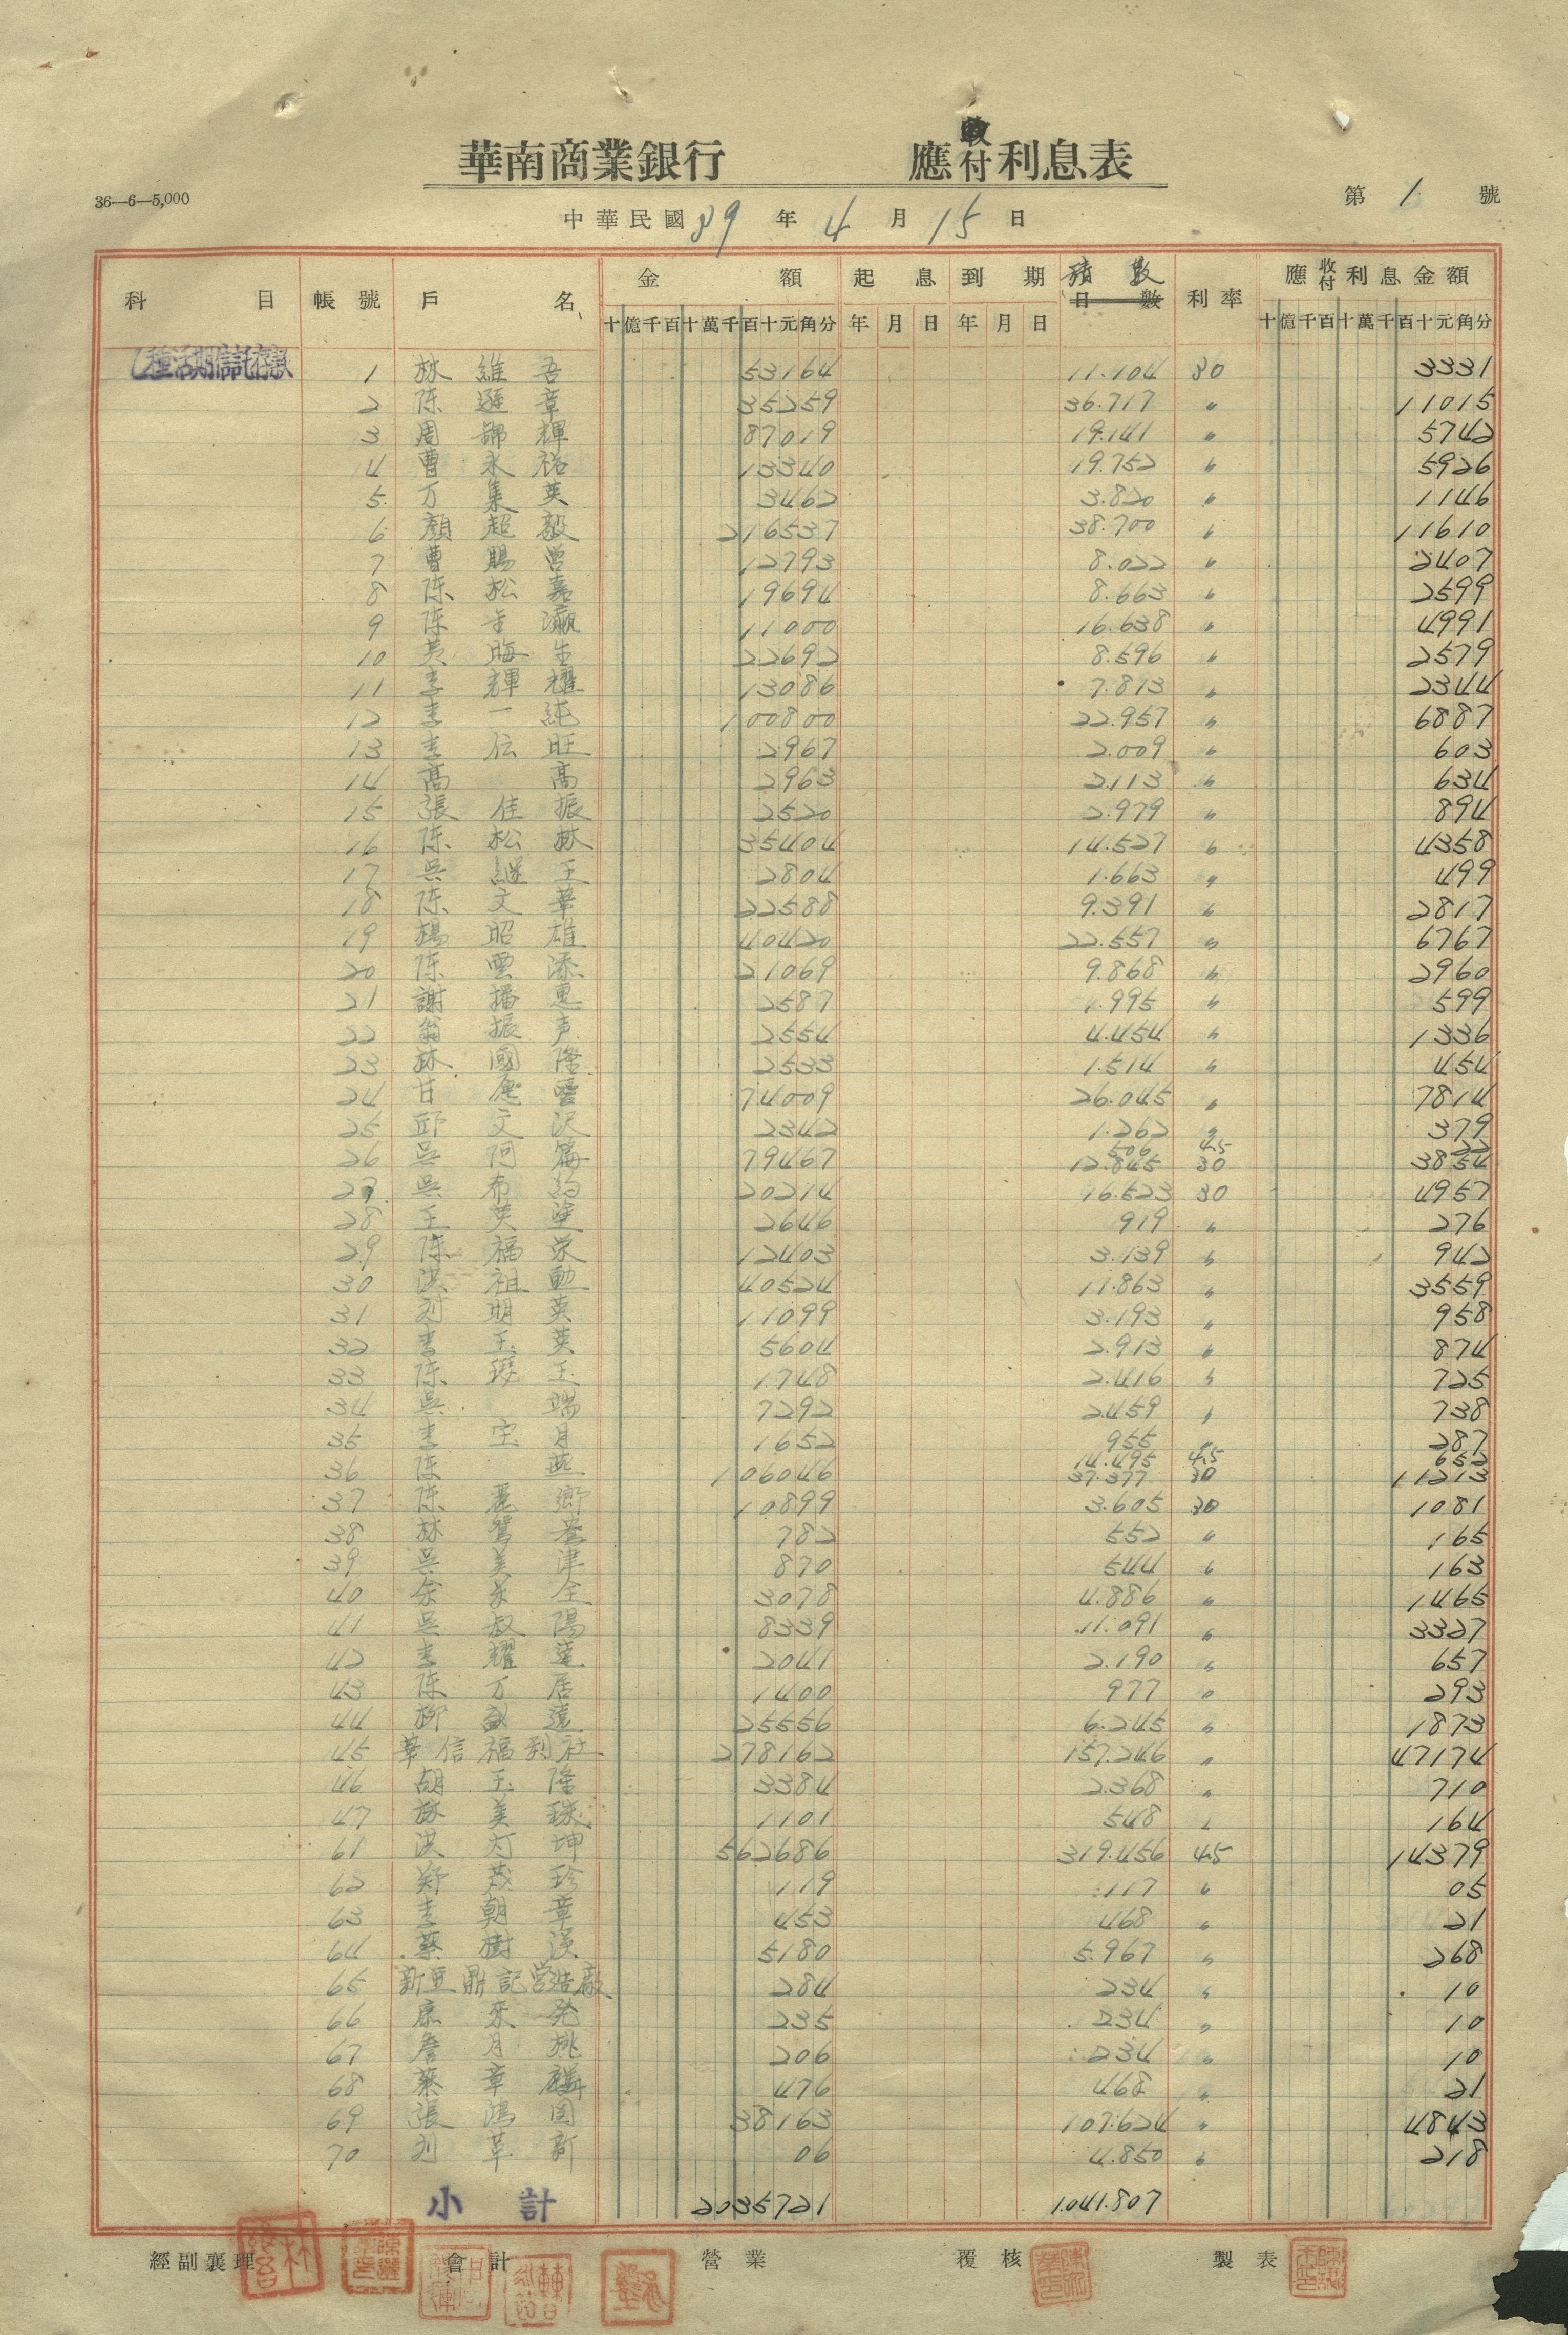 華南商業銀行 應付利息表
36—6—5,000
第 1 號
中華民國39年4月15日
科目 帳號 戶名 金額 起息 到期 積數 利率 應收付利息金額
十億千百十萬千百十元角分 年月日 年月日 十億千百十萬千百十元角分
乙種活期信託存款 1 林維吾 53164 11.104 30 3331
2 陳遜章 35259 36.717 〃 11015
3 周 輝 87019 19.141 〃 5742
4 曹永裕 13340 19.752 〃 5926
5 万集英 3462 3.820 〃 1146
6 顏超毅 216537 38.700 〃 11610
7 曹賜曾 12793 8.022 〃 2407
8 陈松嘉 19694 8.663 〃 2599
9 陈 瀛 11000 16.638 〃 4991
10 黃海生 22692 8.596 〃 2579
11 李輝耀 13086 7.813 〃 2344
12 李一純 100800 22.957 〃 6887
13 李伝旺 2967 2.009 〃 603
14 高 高 2963 2.113 〃 634
15 張佳振 2520 2.979 〃 894
16 陈松林 35404 14.527 〃 4358
17 吳継王 2804 1.663 〃 499
18 陈文華 22588 9.391 〃 2817
19 楊昭雄 40420 22.557 〃 6767
20 陈雲添 21069 9.868 〃 2960
21 謝播惠 2587 1.995 〃 599
22 翁振声 2554 4.454 〃 1336
23 林國隆 2533 1.514 〃 454
24 甘應雲 74009 26.045 〃 7814
25 邱文沢 2342 1.262 〃 379
506 45 22
26 吳阿篇 79467 12.845 30 3854
27 吳布約 20214 16.523 30 4957
28 王英塗 2646 919 〃 276
29 陈福栄 12403 3.139 〃 942
30 洪祖勳 40524 11.863 〃 3559
31 刘明英 11099 3.193 〃 958
32 李玉英 5604 2.913 〃 874
33 陈琴玉 1748 2.416 〃 725
34 吳 端 7292 2.459 〃 738
35 李宝月 1652 955 〃 287
14.495 45 652
36 陈 燕 106046 37.377 30 11213
37 陈麗卿 10899 3.605 30 1081
38 林鴛 782 552 〃 165
39 吳美津 870 544 〃 163
40 余 全 3078 4.886 〃 1465
41 吳叔陽 8339 11.091 〃 3327
42 李耀蓮 2041 2.190 〃 657
43 陈万居 1400 977 〃 293
44 柳 遠 25556 6.245 〃 1873
45 華信福利社 278162 157.246 〃 47174
46 胡玉隆 3384 2.368 〃 710
47 林美珠 1101 548 〃 164
61 洪 坤 562686 319.456 45 14379
62 鄭茂珍 119 117 〃 05
63 李朝章 453 468 〃 21
64 蔡樹漢 5180 5.967 〃 268
65 新亜鼎記営造廠 284 234 〃 10
66 康來発 235 234 〃 10
67 詹月桃 206 234 〃 10
68 蔡章麟 476 468 〃 21
69 張鴻図 38163 107.624 〃 4843
70 刘革新 06 4.850 〃 218
小計 2035721 1.041.807
經副襄理 會計 營業 覆核 製表